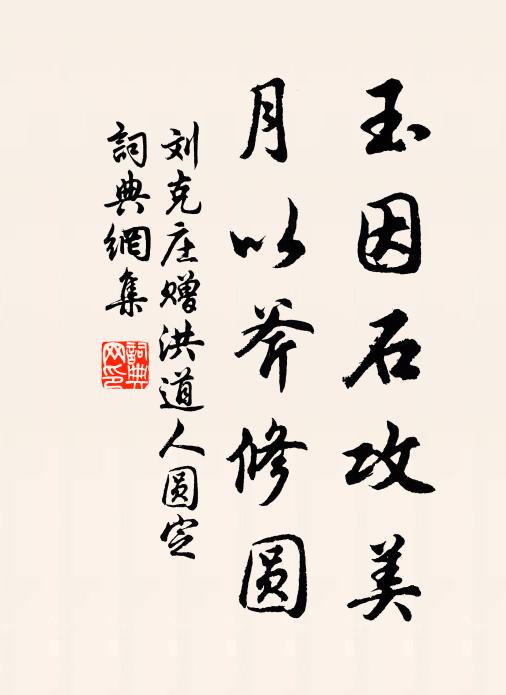 玉因石攻美
月以斧修圆
刘克庄赠洪道人圆定
詞典網集
詞典網印